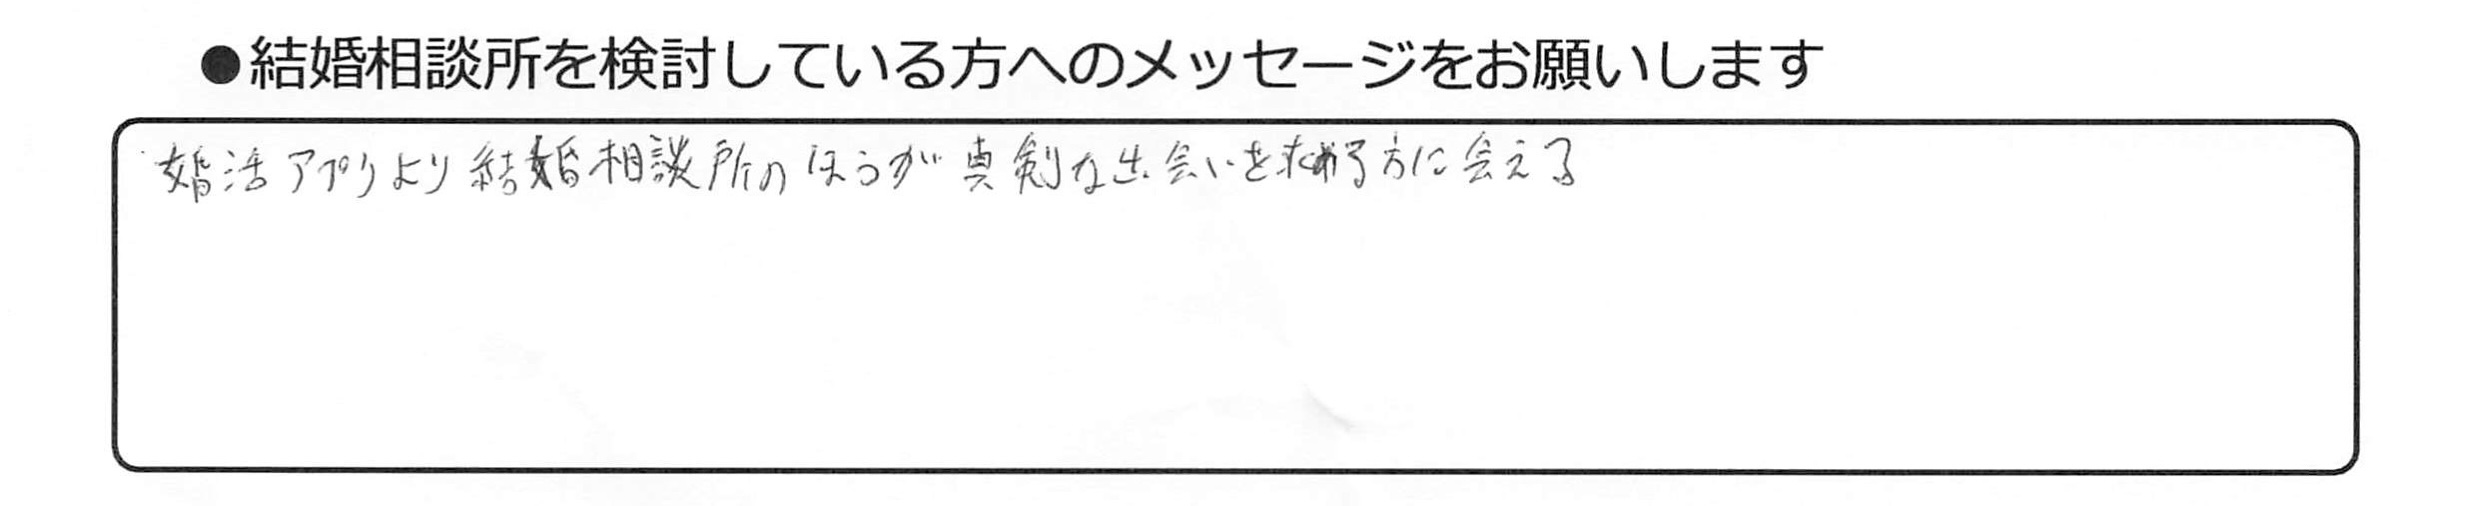 ●結婚相談所を検討している方へのメッセージをお願いします
婚活アプリより結婚相談所のほうが真剣な出会いを求める方に会える